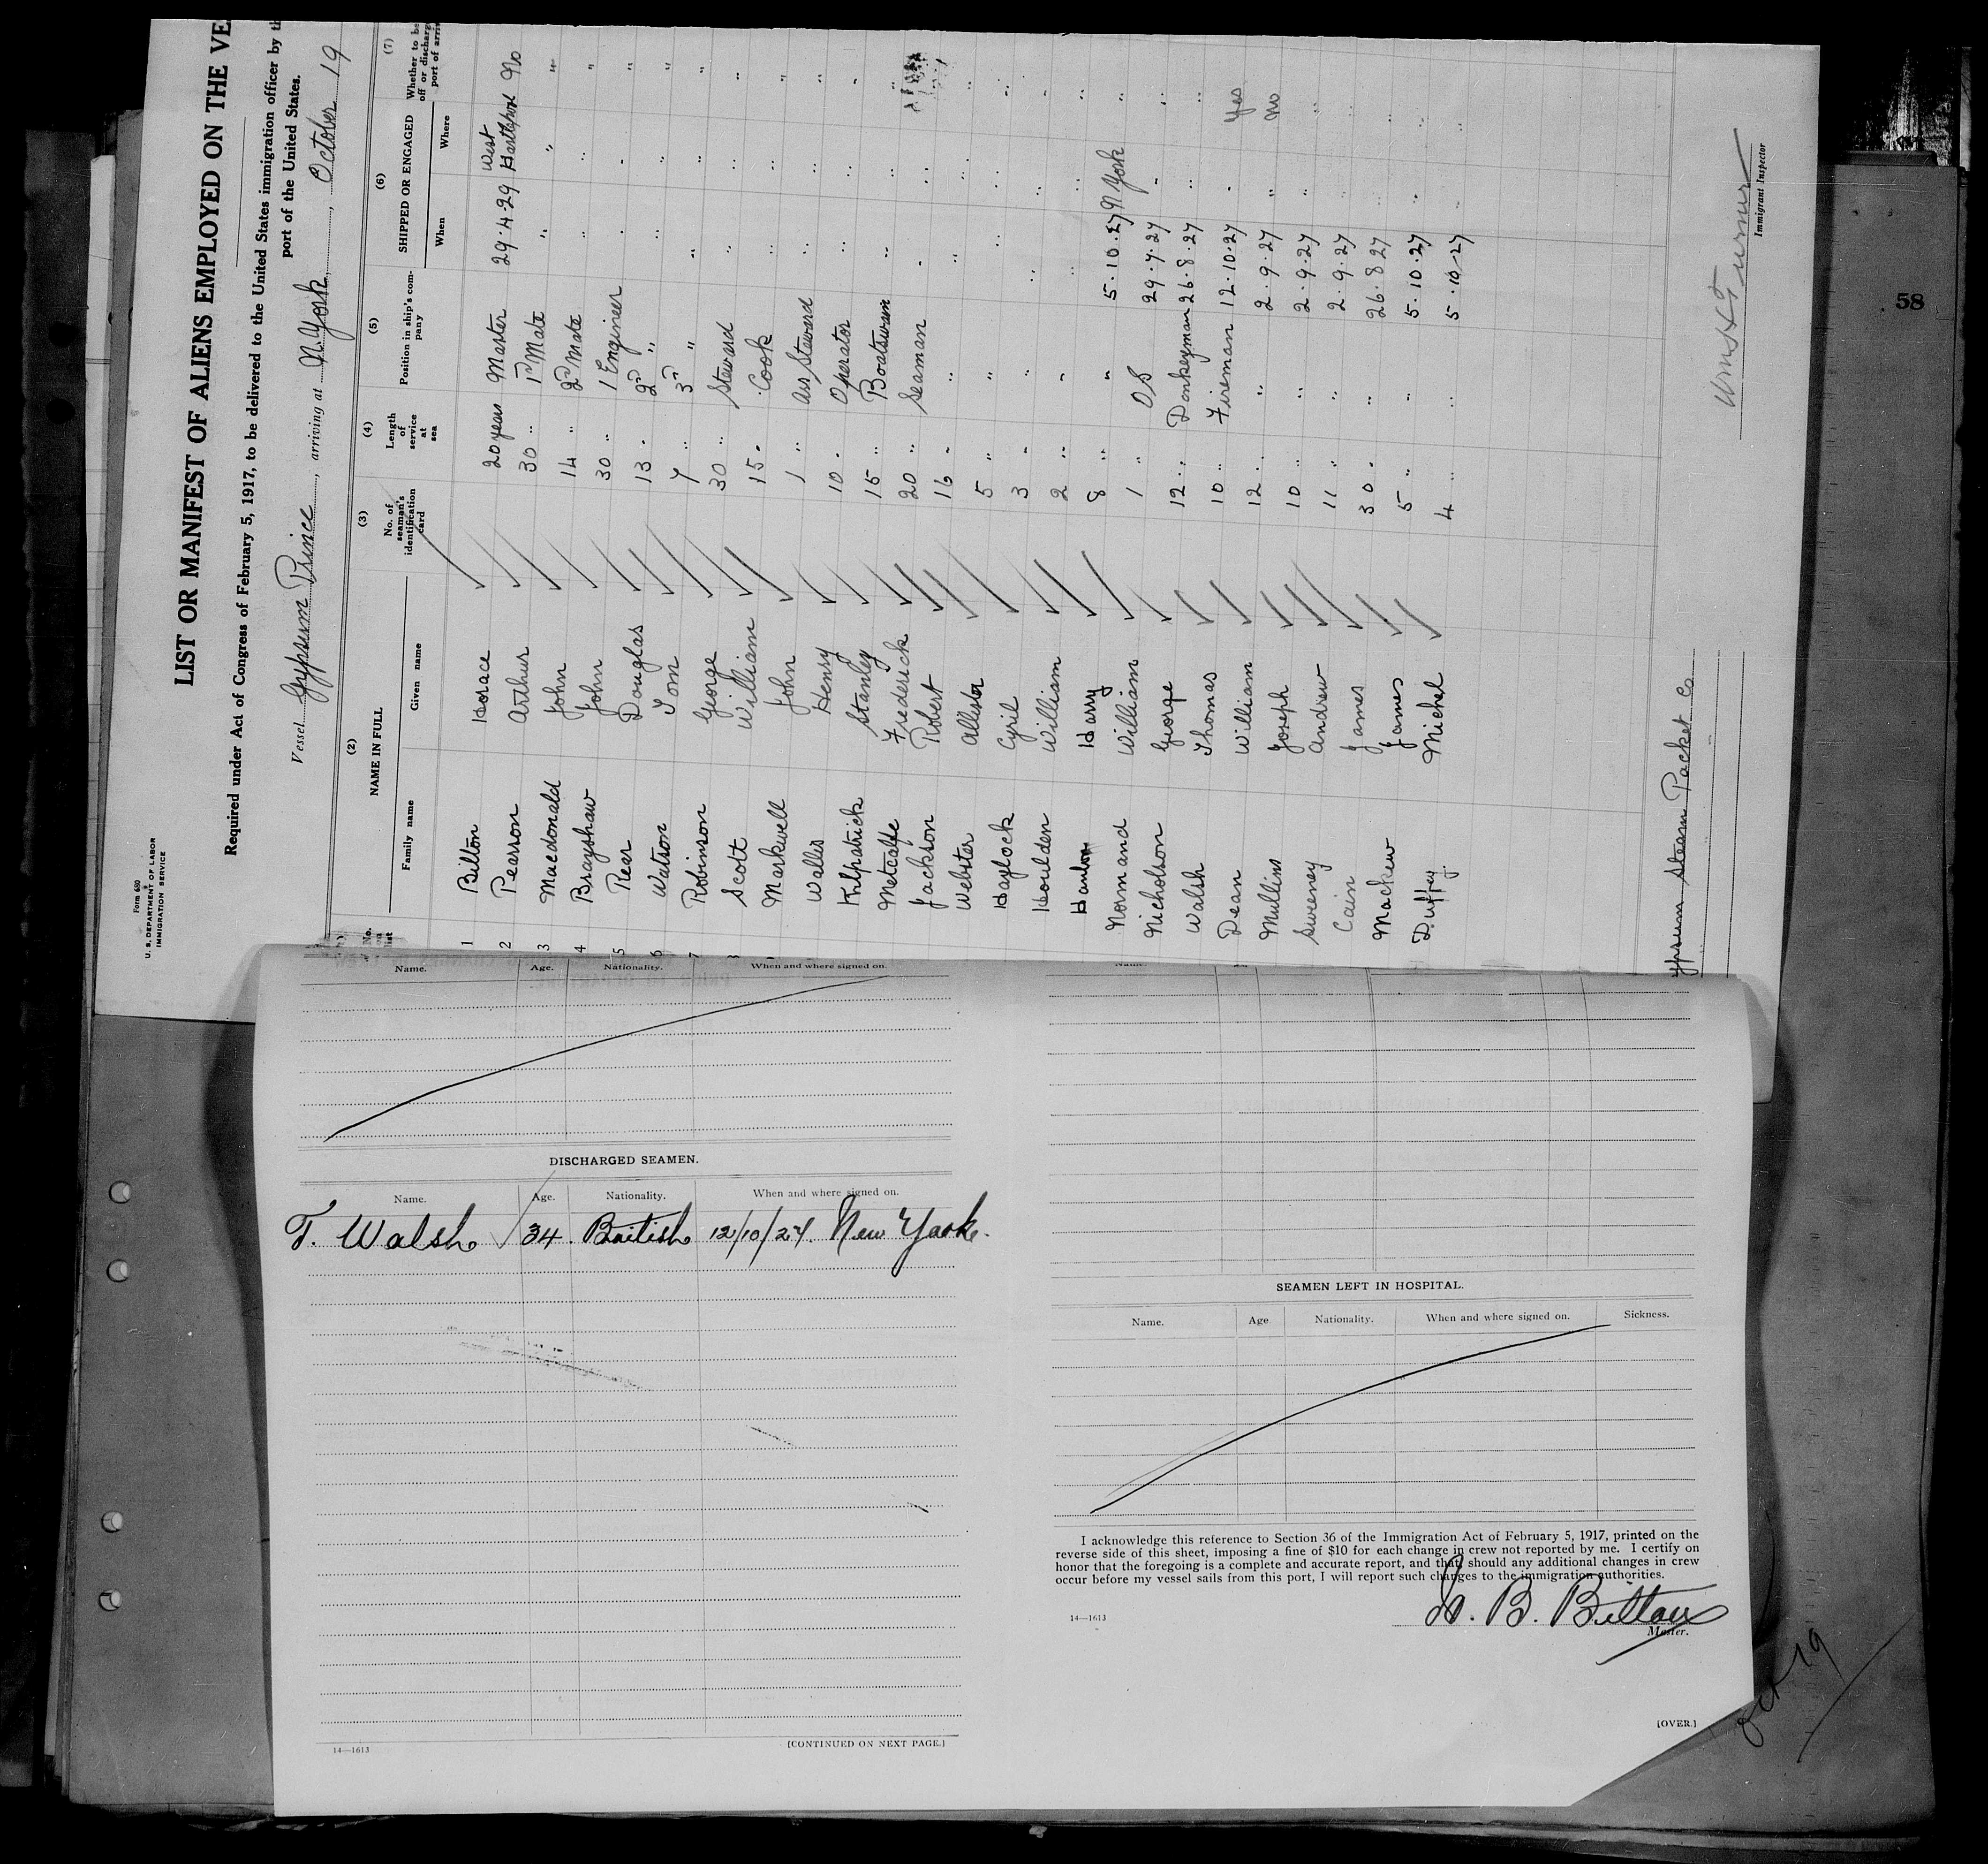 Form 680
U. S. DEPARTMENT OF LABOR
IMMIGRATION SERVICE
LIST OR MANIFEST OF ALIENS EMPLOYED ON THE VE
Required under Act of Congress of February 5, 1917, to be delivered to the United States immigration officer by th
port of the United States.
Vessel Gypsum Prince, arriving at N. York, October 19
(2) (3) (4) (5) (6) (7)
NAME IN FULL No. of seaman's identification card Length of service at sea Position in ship's company SHIPPED OR ENGAGED Whether to be
off or discharg
port of arri
No. list Family name Given name When Where
1 Bilton Horace 20 years Master 29.4.29 West Hartlepool No
2 Pearson Arthur 30 " 1st Mate " " "
3 Macdonald John 14 " 2nd Mate " " "
4 Brayshaw John 30 " 1 Engineer " " "
5 Reer Douglas 13 " 2nd " " " "
6 Watson Tom 7 " 3rd " " " "
7 Robinson George 30 " Steward " " "
8 Scott William 15 " Cook " " "
Maskwell John 1 " Ass Steward " " "
Wallis Henry 10 " Operator " " "
Kilpatrick Stanley 15 " Boatswain " " "
Metcalfe Frederick 20 " Seaman " " "
Jackson Robert 16 " " " " "
Webster Allister 5 " " " " "
Haylock Cyril 3 " " " " "
Houlden William 2 " " " " "
Hanlon Harry 8 " " 5.10.27 N York "
Normand William 1 " OS 29.7.27 " "
Nicholson George 12 " Donkeyman 26.8.27 " "
Walsh Thomas 10 " Fireman 12.10.27 " Yes
Dean William 12 " " 2.9.27 " No
Mullins Joseph 10 " " 2.9.27 " "
Sweeney Andrew 11 " " 2.9.27 " "
Cain James 30 " " 26.8.27 " "
Mackew James 5 " " 5.10.27 " "
Duffey Michel 4 " " 5.10.27 " "
ypsum Steam Packet Co
Immigrant Inspector
58
Name. Age. Nationality. When and where signed on.
DISCHARGED SEAMEN.
Name. Age. Nationality. When and where signed on.
T. Walsh 34. British 12/10/27. New York.
14—1613
[CONTINUED ON NEXT PAGE.]
SEAMEN LEFT IN HOSPITAL.
Name. Age Nationality. When and where signed on. Sickness.
I acknowledge this reference to Section 36 of the Immigration Act of February 5, 1917, printed on the
reverse side of this sheet, imposing a fine of $10 for each change in crew not reported by me. I certify on
honor that the foregoing is a complete and accurate report, and that, should any additional changes in crew
occur before my vessel sails from this port, I will report such changes to the immigration authorities.
14—1613
H. B. Bilton
Master.
[OVER.]
Oct 19